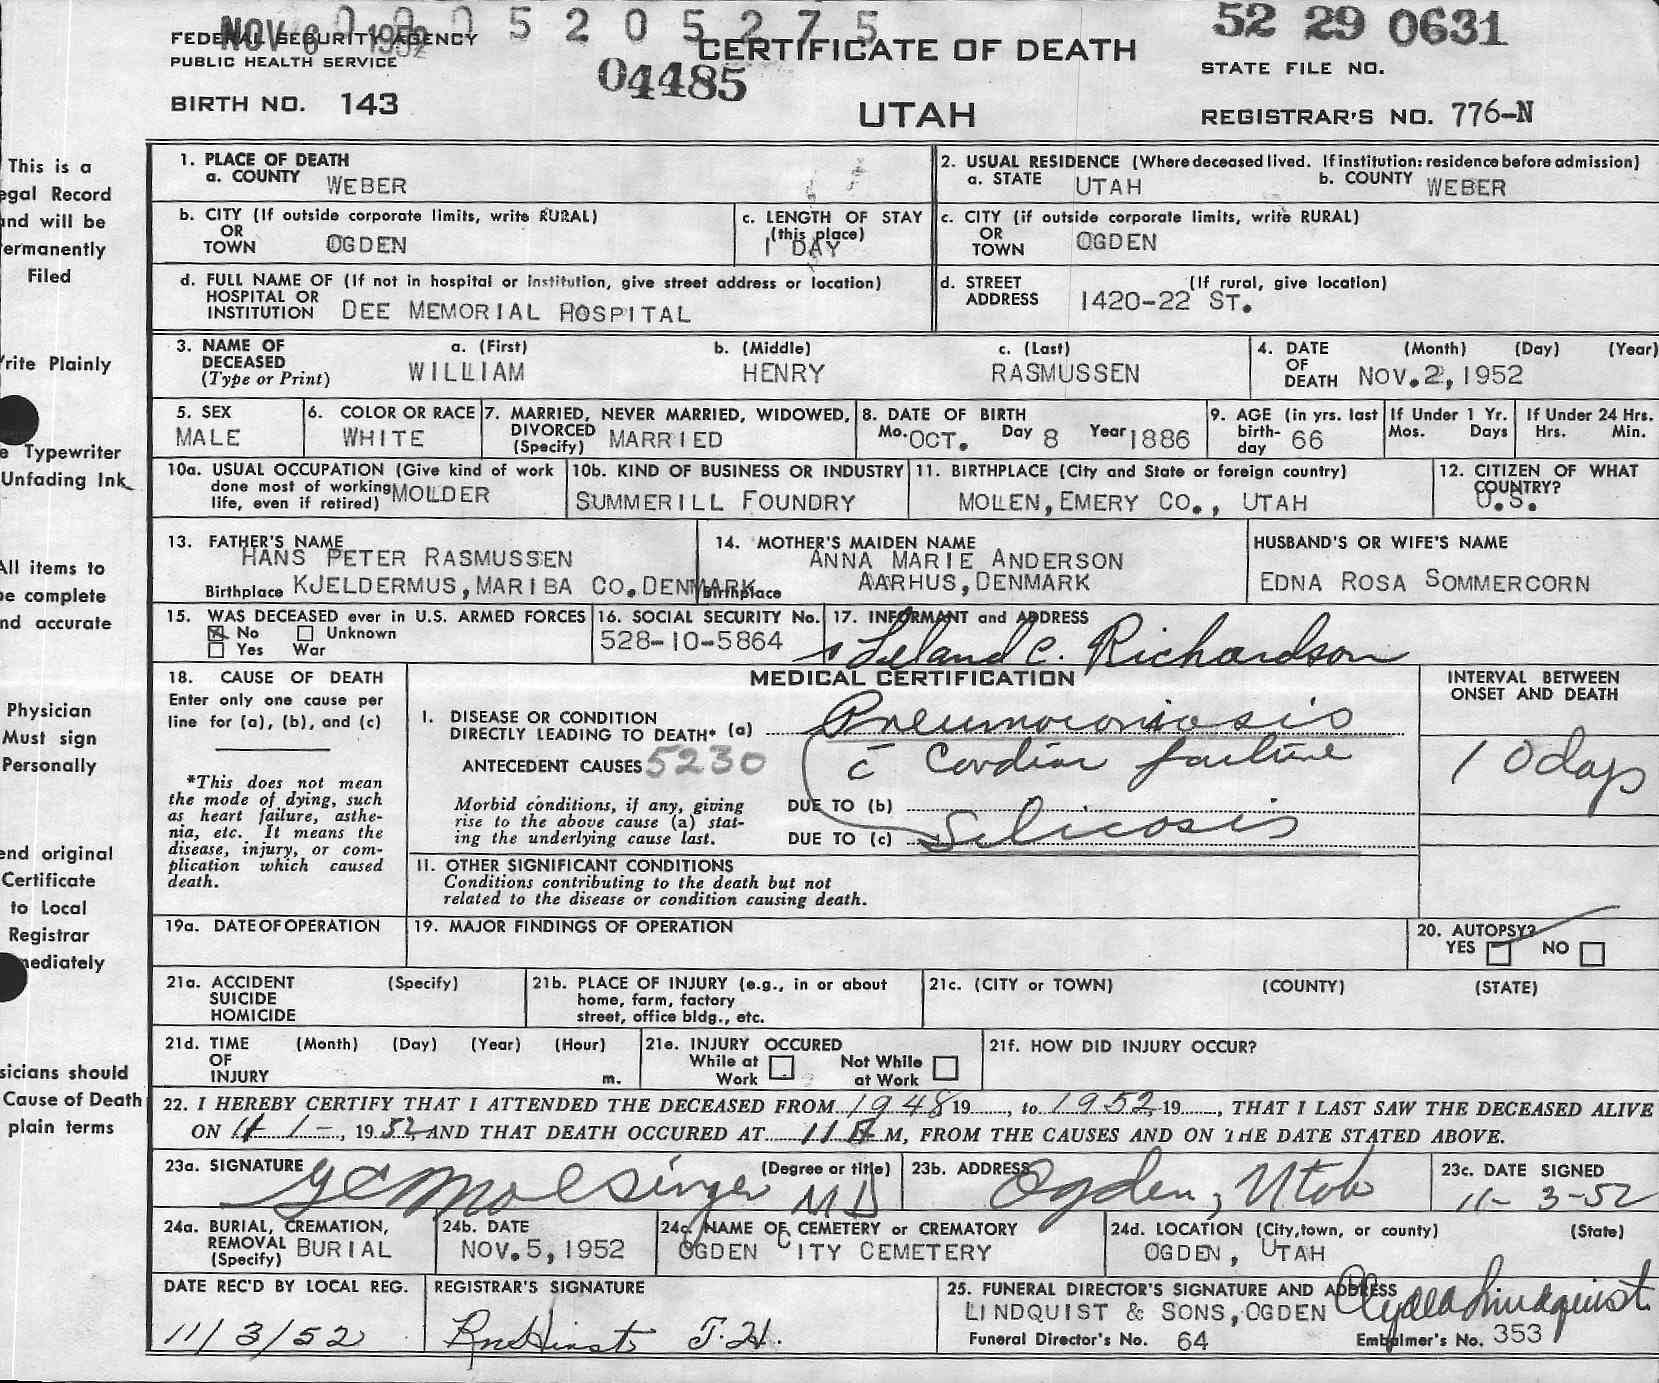 NOV 6 1952 0005205275 52 29 0631
FEDERAL SECURITY AGENCY
PUBLIC HEALTH SERVICE
CERTIFICATE OF DEATH
04485
STATE FILE NO.
BIRTH NO. 143
UTAH
REGISTRAR'S NO. 776-N
This is a
egal Record
nd will be
ermanently
Filed
rite Plainly
e Typewriter
Unfading Ink
All items to
be complete
nd accurate
Physician
Must sign
Personally
end original
Certificate
to Local
Registrar
mediately
sicians should
Cause of Death
plain terms
1. PLACE OF DEATH
a. COUNTY WEBER
2. USUAL RESIDENCE (Where deceased lived. If institution: residence before admission)
a. STATE UTAH b. COUNTY WEBER
b. CITY (If outside corporate limits, write RURAL)
OR
TOWN OGDEN
c. LENGTH OF STAY
(this place)
1 DAY
c. CITY (if outside corporate limits, write RURAL)
OR
TOWN OGDEN
d. FULL NAME OF (If not in hospital or institution, give street address or location)
HOSPITAL OR
INSTITUTION DEE MEMORIAL HOSPITAL
d. STREET (If rural, give location)
ADDRESS 1420-22 ST.
3. NAME OF a. (First) b. (Middle) c. (Last)
DECEASED
(Type or Print) WILLIAM HENRY RASMUSSEN
4. DATE (Month) (Day) (Year)
OF
DEATH NOV. 2, 1952
5. SEX
MALE
6. COLOR OR RACE
WHITE
7. MARRIED, NEVER MARRIED, WIDOWED,
DIVORCED
(Specify) MARRIED
8. DATE OF BIRTH
Mo. OCT. Day 8 Year 1886
9. AGE (in yrs. last
birth-
day 66
If Under 1 Yr.
Mos. Days
If Under 24 Hrs.
Hrs. Min.
10a. USUAL OCCUPATION (Give kind of work
done most of working
life, even if retired) MOLDER
10b. KIND OF BUSINESS OR INDUSTRY
SUMMERILL FOUNDRY
11. BIRTHPLACE (City and State or foreign country)
MOLEN, EMERY CO., UTAH
12. CITIZEN OF WHAT
COUNTRY?
U.S.
13. FATHER'S NAME
HANS PETER RASMUSSEN
Birthplace KJELDERMUS, MARIBA CO. DENMARK
14. MOTHER'S MAIDEN NAME
ANNA MARIE ANDERSON
Birthplace AARHUS, DENMARK
HUSBAND'S OR WIFE'S NAME
EDNA ROSA SOMMERCORN
15. WAS DECEASED ever in U.S. ARMED FORCES
No Unknown
Yes War
16. SOCIAL SECURITY No.
528-10-5864
17. INFORMANT and ADDRESS
Leland C. Richardson
18. CAUSE OF DEATH
Enter only one cause per
line for (a), (b), and (c)
*This does not mean
the mode of dying, such
as heart failure, asthe-
nia, etc. It means the
disease, injury, or com-
plication which caused
death.
MEDICAL CERTIFICATION
I. DISEASE OR CONDITION
DIRECTLY LEADING TO DEATH* (a) Pneumoconiosis
c̄ Cardiac failure
ANTECEDENT CAUSES 5230
Morbid conditions, if any, giving
rise to the above cause (a) stat-
ing the underlying cause last.
DUE TO (b)
DUE TO (c) Silicosis
II. OTHER SIGNIFICANT CONDITIONS
Conditions contributing to the death but not
related to the disease or condition causing death.
INTERVAL BETWEEN
ONSET AND DEATH
10 days
19a. DATE OF OPERATION
19. MAJOR FINDINGS OF OPERATION
20. AUTOPSY?
YES NO
21a. ACCIDENT (Specify)
SUICIDE
HOMICIDE
21b. PLACE OF INJURY (e.g., in or about
home, farm, factory
street, office bldg., etc.
21c. (CITY or TOWN) (COUNTY) (STATE)
21d. TIME (Month) (Day) (Year) (Hour)
OF
INJURY m.
21e. INJURY OCCURED
While at Not While
Work at Work
21f. HOW DID INJURY OCCUR?
22. I HEREBY CERTIFY THAT I ATTENDED THE DECEASED FROM 1948 19, to 1952 19, THAT I LAST SAW THE DECEASED ALIVE
ON 11 1-, 1952, AND THAT DEATH OCCURED AT 11 A M, FROM THE CAUSES AND ON THE DATE STATED ABOVE.
23a. SIGNATURE (Degree or title)
MD
23b. ADDRESS
Ogden, Utah
23c. DATE SIGNED
11-3-52
24a. BURIAL, CREMATION,
REMOVAL
(Specify) BURIAL
24b. DATE
NOV. 5, 1952
24c. NAME OF CEMETERY or CREMATORY
OGDEN CITY CEMETERY
24d. LOCATION (City, town, or county) (State)
OGDEN, UTAH
DATE REC'D BY LOCAL REG.
11/3/52
REGISTRAR'S SIGNATURE
25. FUNERAL DIRECTOR'S SIGNATURE AND ADDRESS
LINDQUIST & SONS, OGDEN Clyde Lindquist
Funeral Director's No. 64 Embalmer's No. 353